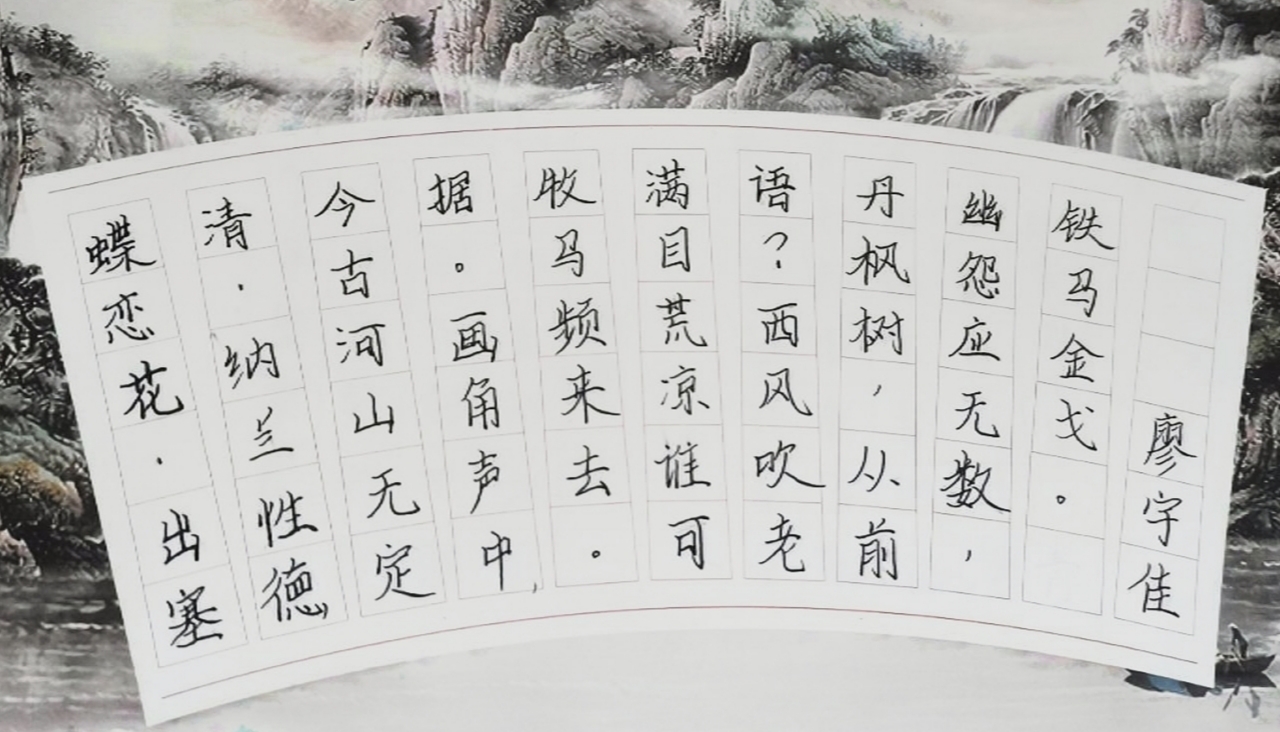 蝶恋花·出塞
清·纳兰性德
今古河山无定
据。画角声中,
牧马频来去。
满目荒凉谁可
语?西风吹老
丹枫树,从前
幽怨应无数,
铁马金戈。
廖字佳